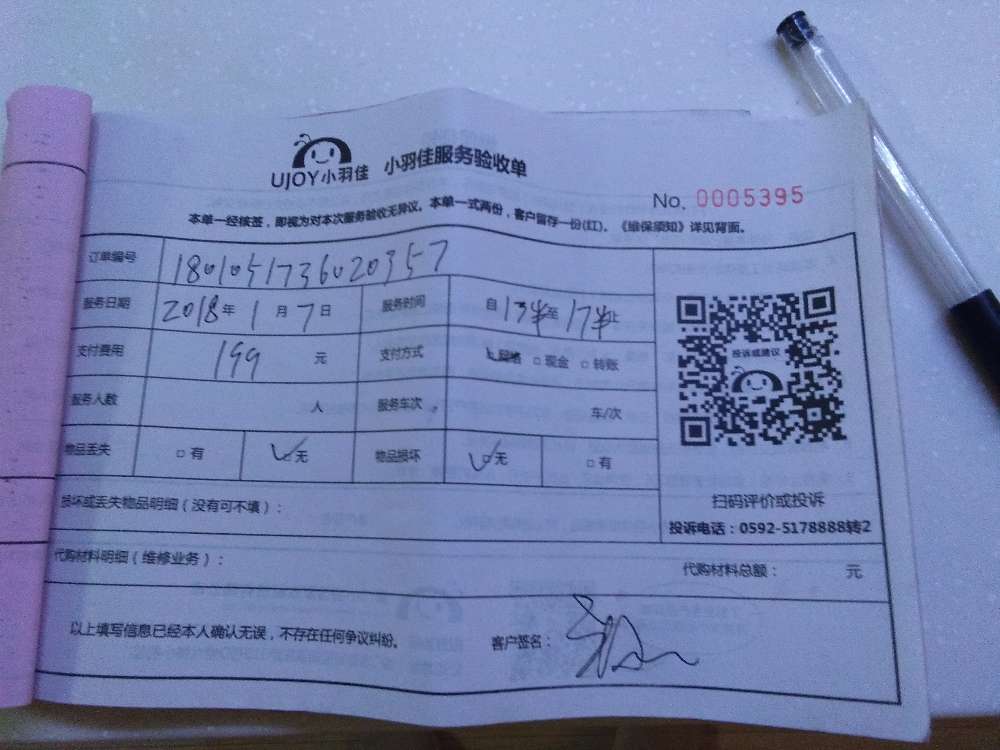 UJOY小羽佳 小羽佳服务验收单
No. 0005395
本单一经核签，即视为对本次服务验收无异议。本单一式两份，客户留存一份(红)。《维保须知》详见背面。
订单编号 1801051736020357
服务日期 2018年1月7日 服务时间 自13半至17半止
支付费用 199元 支付方式 网络 □现金 □转账
服务人数 人 服务车次 车/次
物品丢失 □有 □无 物品损坏 □无 □有
投诉或建议
扫码评价或投诉
投诉电话：0592-5178888转2
损坏或丢失物品明细（没有可不填）：
代购材料明细（维修业务）： 代购材料总额： 元
以上填写信息已经本人确认无误，不存在任何争议纠纷。 客户签名：